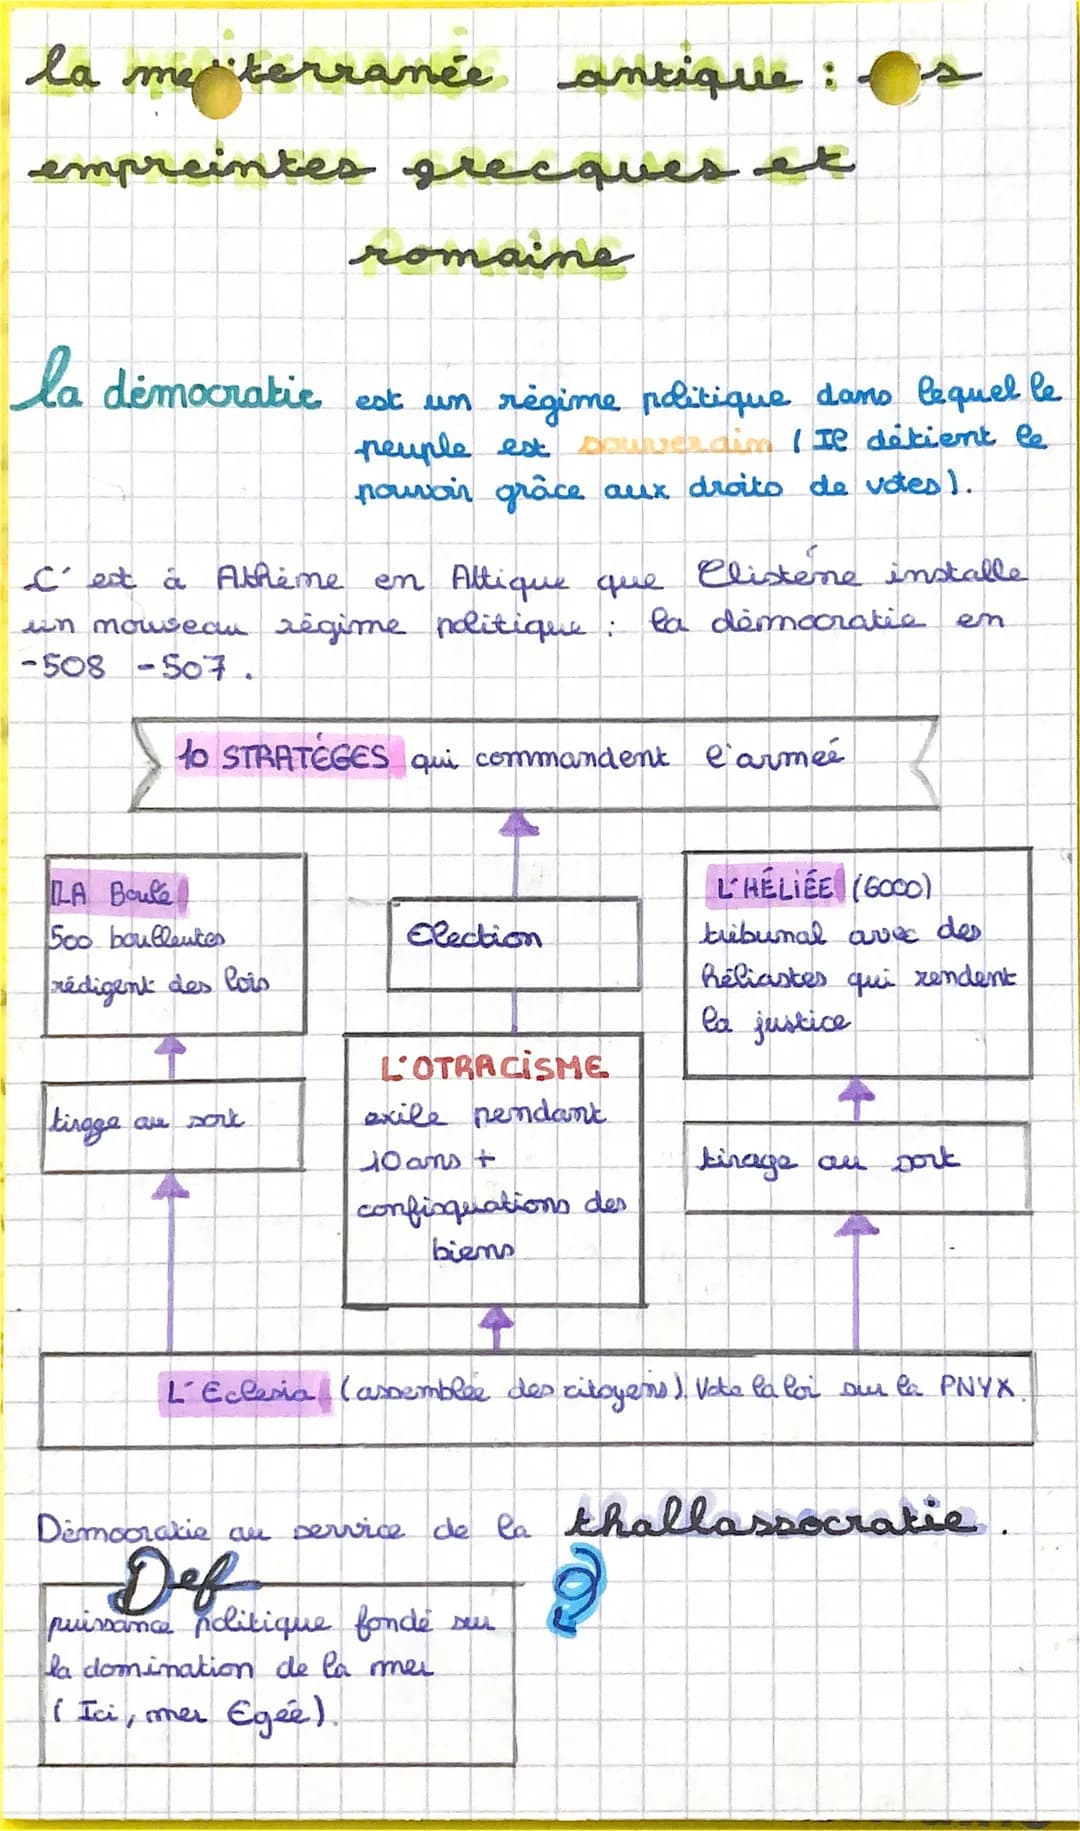 la mediterranée antique : les
empreintes grecques et
romaine
la démocratie est un régime politique dans lequel le
peuple est souverain ( Il détient le
pouvoir grâce aux droits de votes).
C'est à Athème en Attique que Clistène installe
un mouveau régime politique : la démocratie en
-508 -507.
10 STRATÉGES qui commandent l'armeé
LA Boulé
500 boulleutes
rédigent des lois
Election
L'HÉLIÉE (6000)
tribunal avec des
héliastes qui rendent
la justice
tirage au sort
L'OTRACISME
exile pendant
10 ans +
confisquations des
biens
tirage au sort
L'Eclesia (assemblée des citoyens). Vote la loi sur la PNYX.
Démocratie au service de la thallassocratie.
Def
puissance politique fondé sur
la domination de la mer
( Ici, mer Egée).